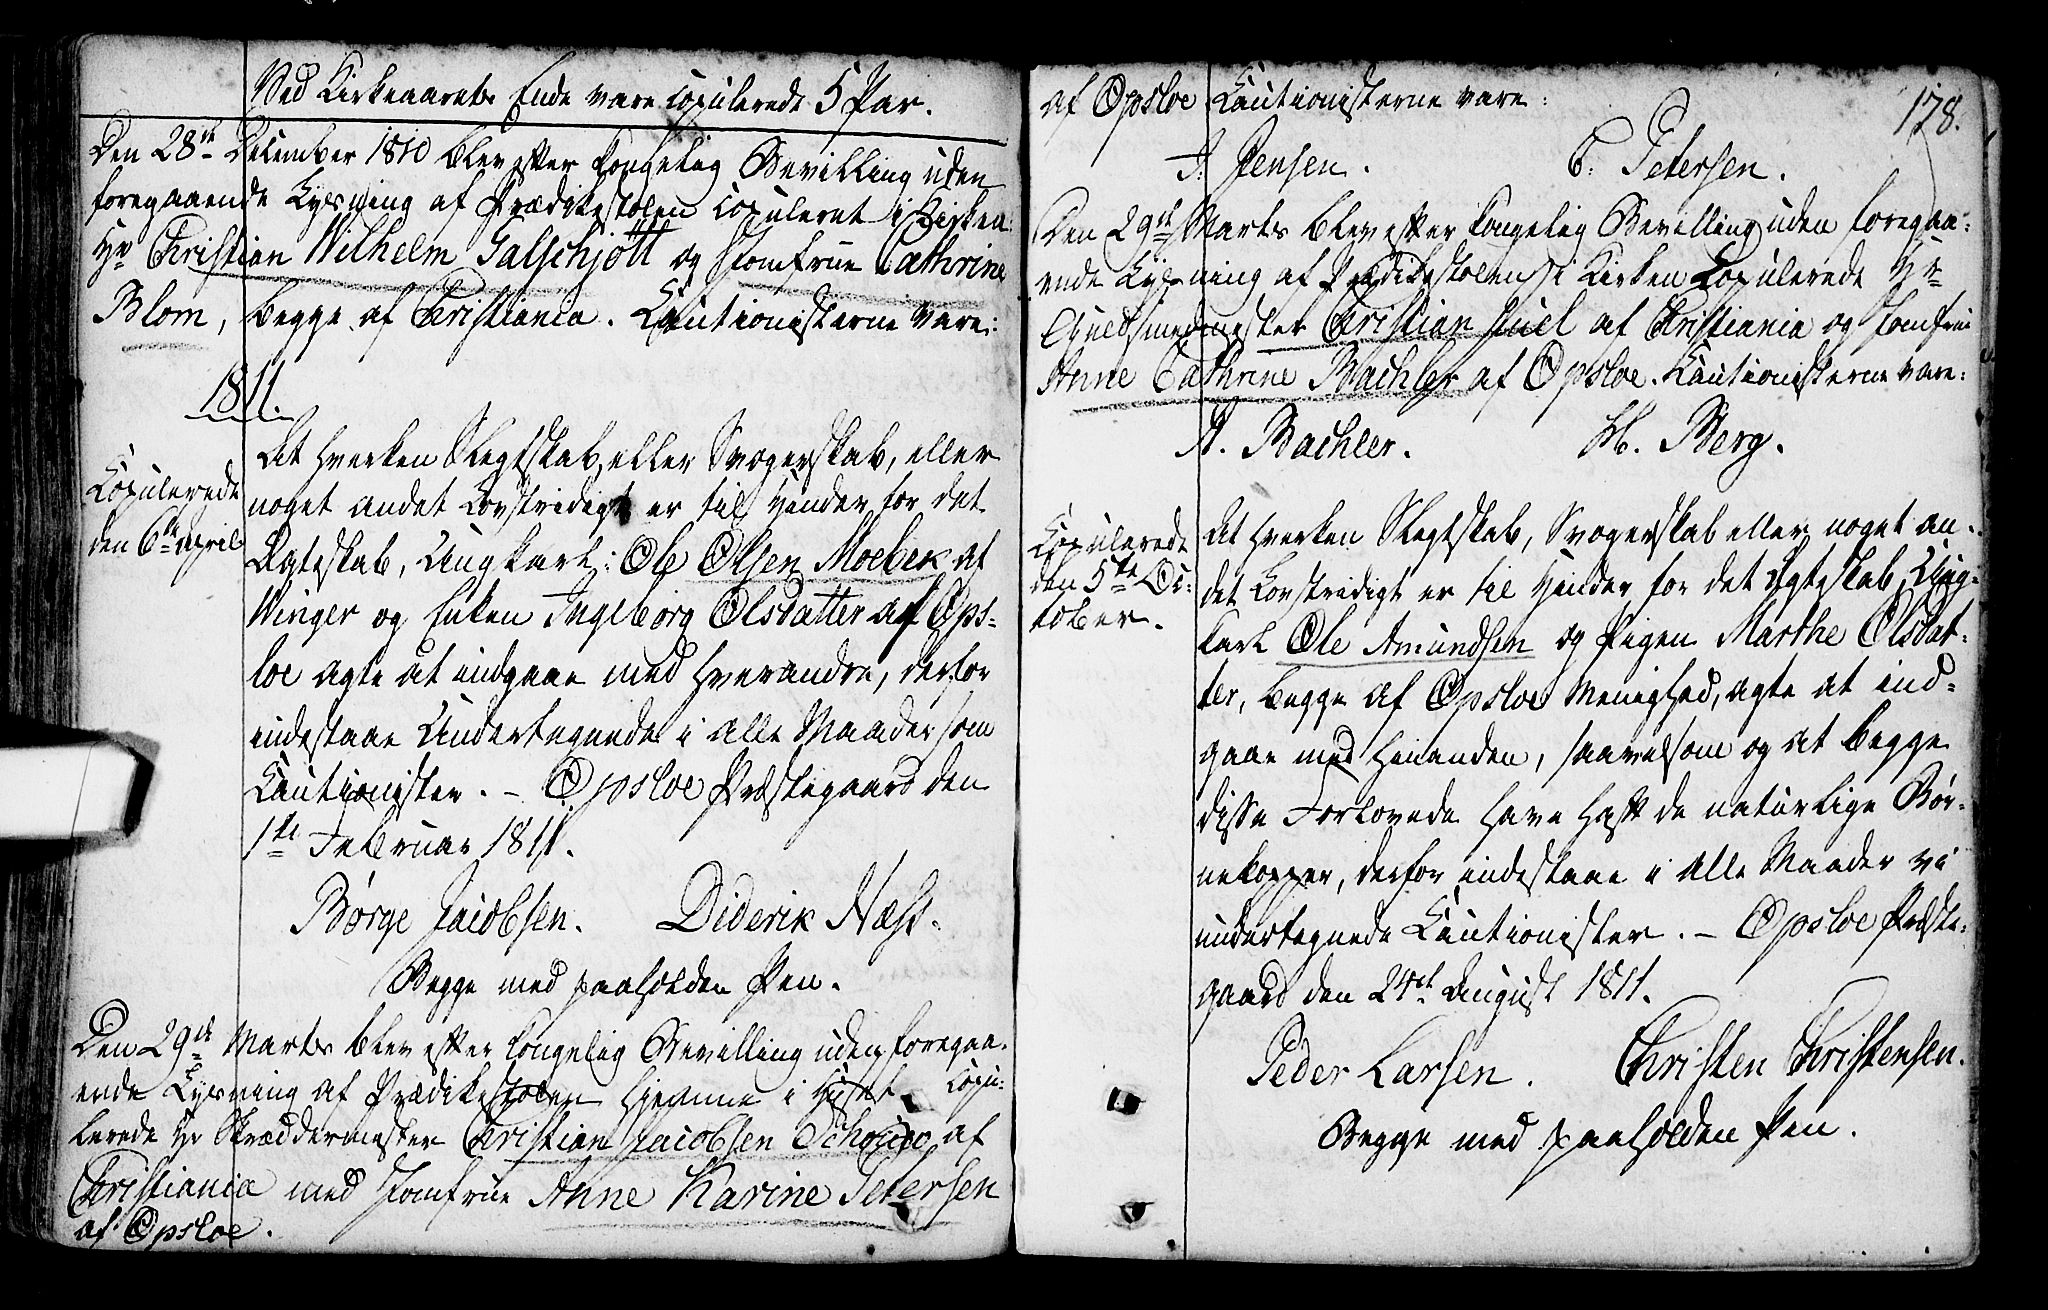 Ved Kirkeaarets Ende vare copulerede 5 Par.
Den 28de December 1810 blev efter Kongelig Bevilling uden
foregaaende Lysning af Prædikestolen copuleret i Kirken:
Hr Christian Wilhelm Galschjött og Jomfrue Cathrine
Blom, begge af Christiania. Cautionisterne vare:
1811.
Copulerede
den 6te April
At hverken Slegtskab, eller Svogerskab, eller
noget andet Lovstridigt er til Hinder for det
Ægteskab, Ungkarl: Ole Olsen Moebek af
Winger og Enken Ingeborg Olsdatter af Ops-
loe agte at indgaae med hverandre, derfor
indestaae Undertegnede i alle Maader som
Cautionister. – Opsloe Præstegaard den
1ste Februar 1811.
Børge Jacobsen. Diderik Næss.
Begge med paaholden Pen.
Den 29de Marts blev efter Kongelig Bevilling uden foregaa-
ende Lysning af Prædikestolen hjemme i Huset copu-
lerede Hr Skræddermester Christian Jacobsen Schouw af
Christiania med Jomfrue Anne Karine Petersen
af Opsloe.
178.
af Opsloe Cautionisterne vare:
J. Jensen. C. Petersen.
Den 29de Marts blev efter Kongelig Bevilling uden foregaa-
ende Lysning af Prædikestolen i Kirken Copulerede Hr
Guldsmedmester Christian Juel af Christiania og Jomfrue
Anne Cathrine Bachler af Opsloe. Cautionisterne vare:
A. Bachler. M. Berg.
Copulerede
den 5te Oc-
tober.
At hverken Slegtskab, Svogerskab eller noget an-
det Lovstridigt er til Hinder for det Ægteskab, Ung-
karl Ole Amundsen og Pigen Marthe Olsdat-
ter, begge af Opsloe Menighed, agte at ind-
gaae med hinanden, saavelsom og at begge
disse Forlovede have havt de naturlige Bør-
nekopper, derfor indestaae i alle Maader vi
undertegnede Cautionister. – Opsloe Præste-
gaard den 24de August 1811.
Peder Larsen. Christen Christensen.
Begge med paaholden Pen.